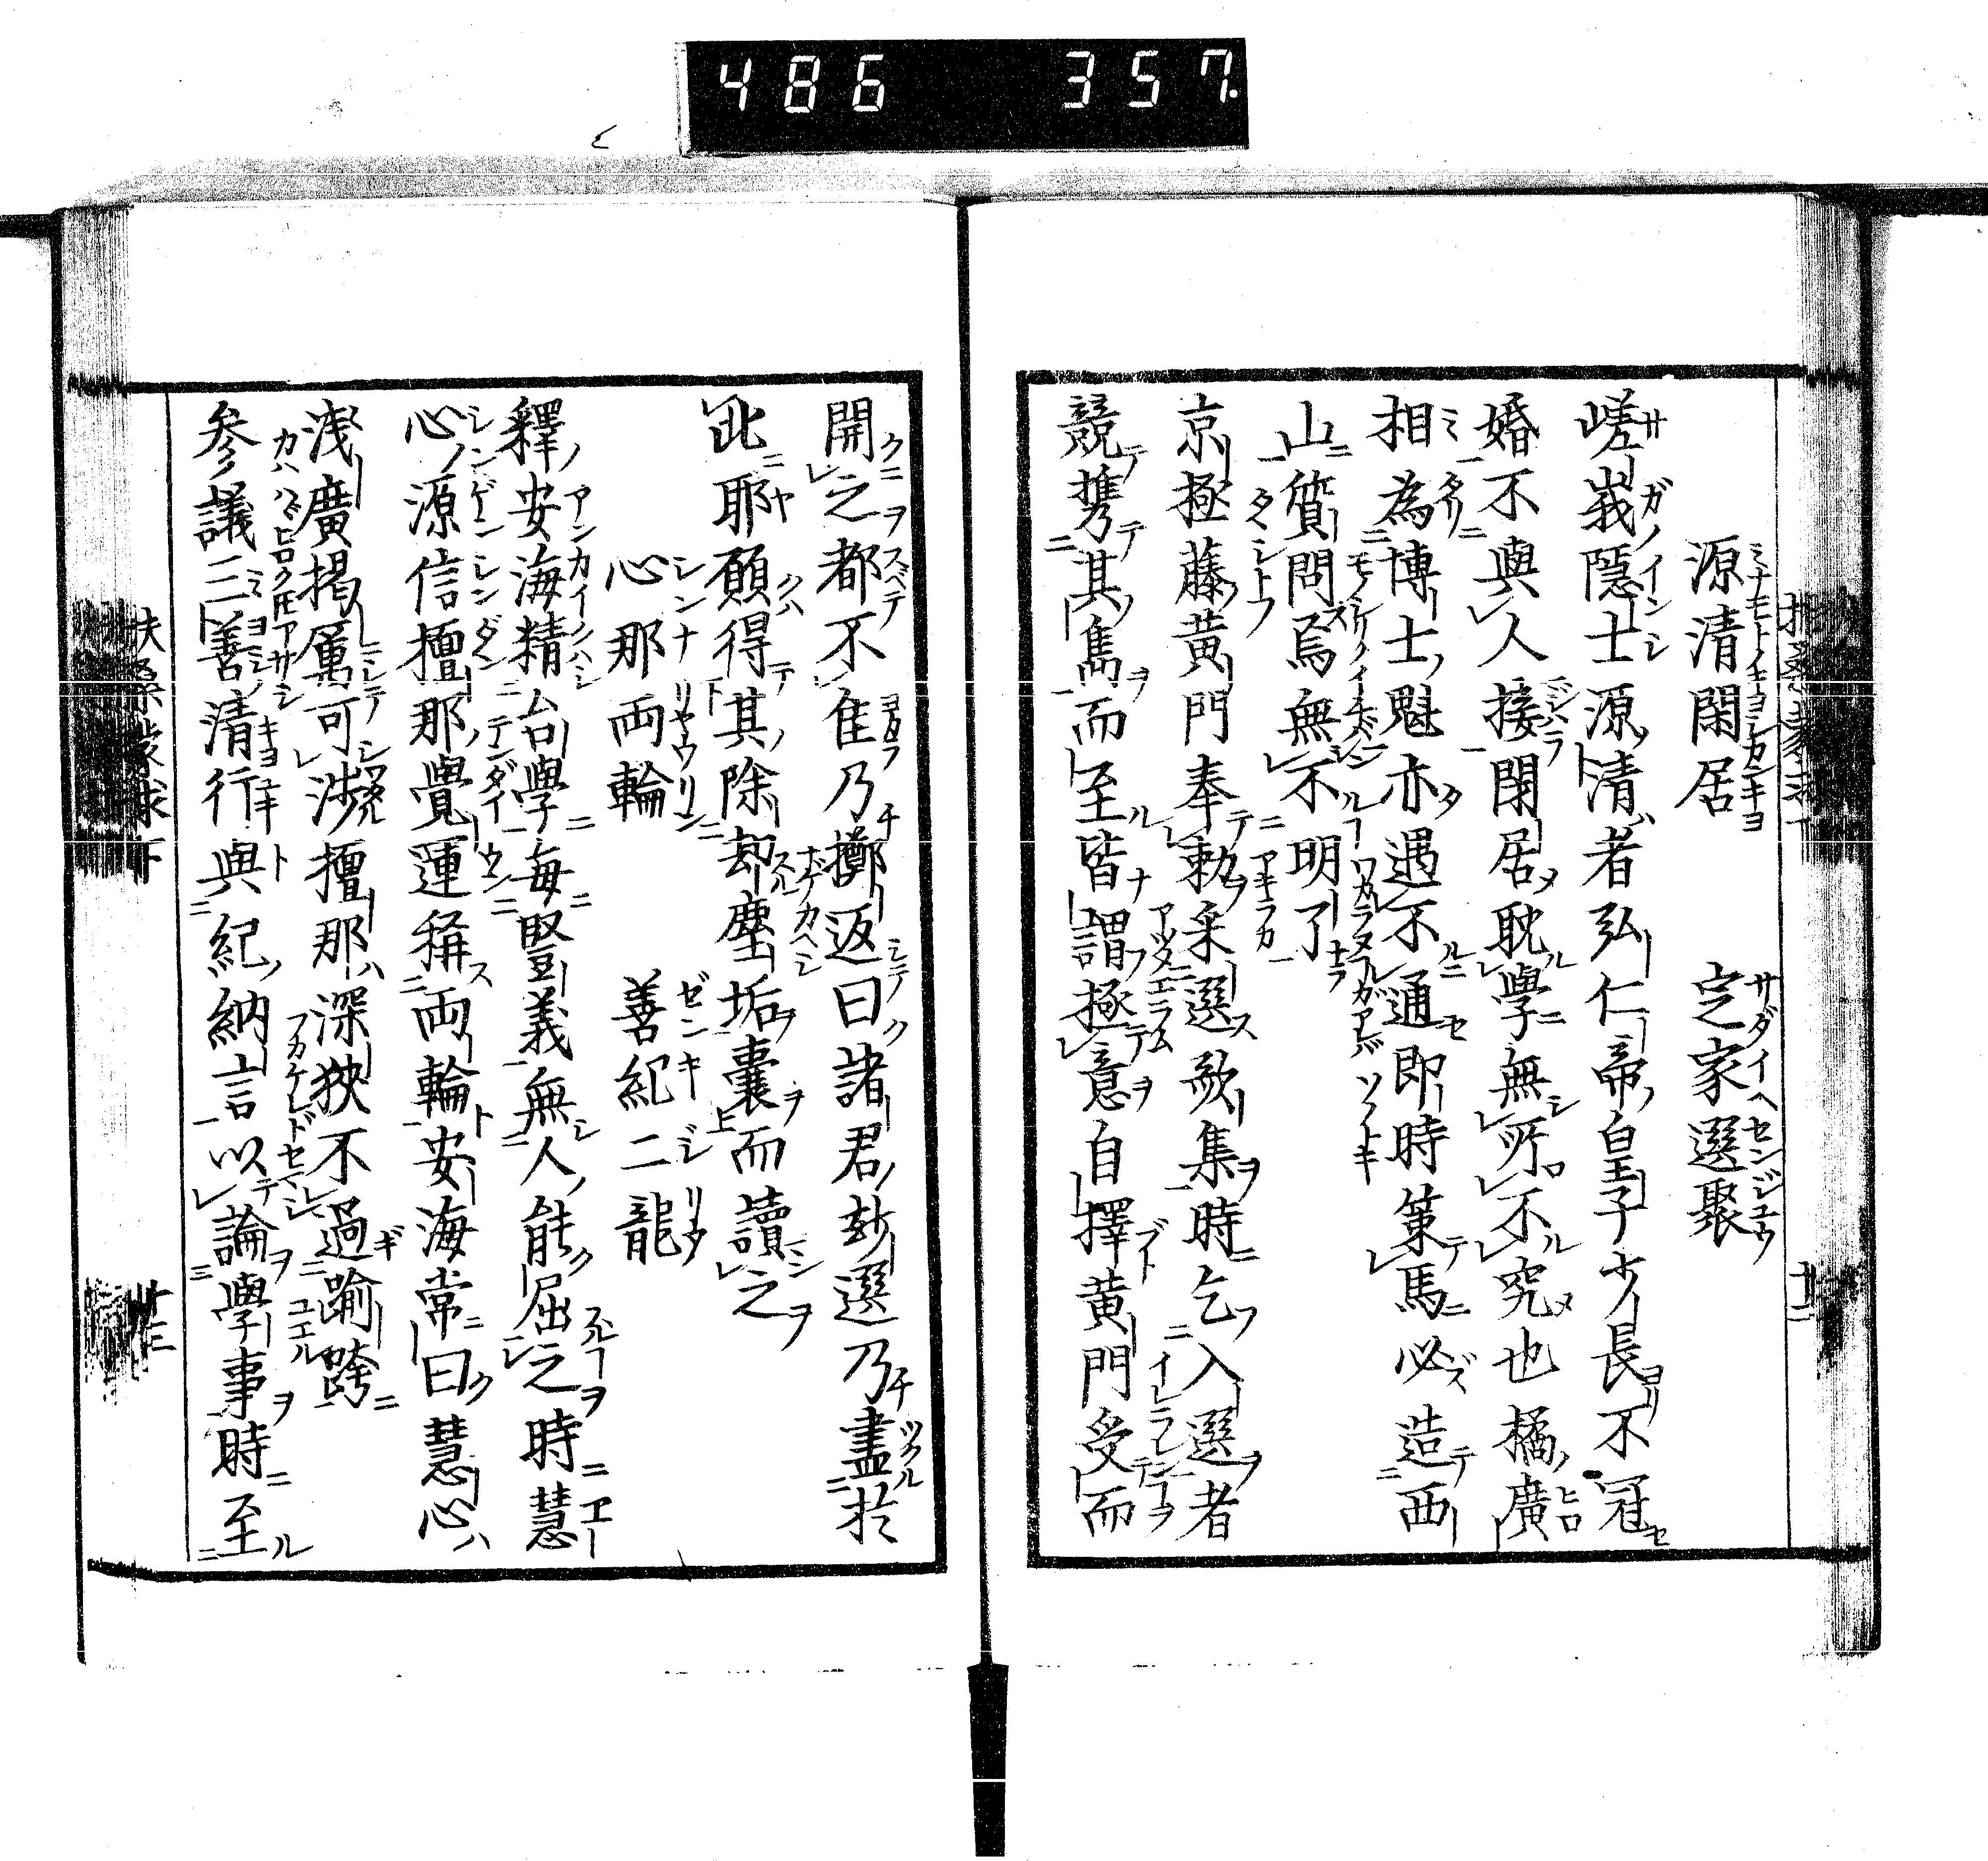 486 357.
源清閑居 定家選聚
嵯峨隱士源清者弘仁帝皇子少長不冠
婚不與人接閑居耽學無所不究也橘廣
相為博士魁亦遇不通即時策馬必造西
山質問焉無不明了
京極藤黄門奉勅采選歌集時乞入選者
競携其雋而至皆謂極意自擇黄門受而
開之都不佳乃擲返曰諸君玅選乃盡於
此耶願得其除却塵垢囊而讀之
心那両輪 善紀二龍
釋安海精台學每竪義無人能屈之時慧
心源信檀那覺運稱両輪安海常曰慧心
淺廣掲厲可涉檀那深狹不過踰跨
参議三善清行與紀納言以論學事時至
扶桑蒙求下 十三